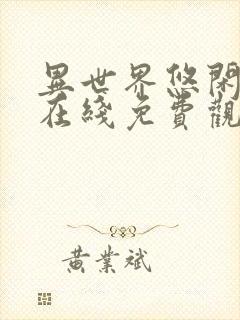 異世界悠閑
在綫免費觀
黃業斌